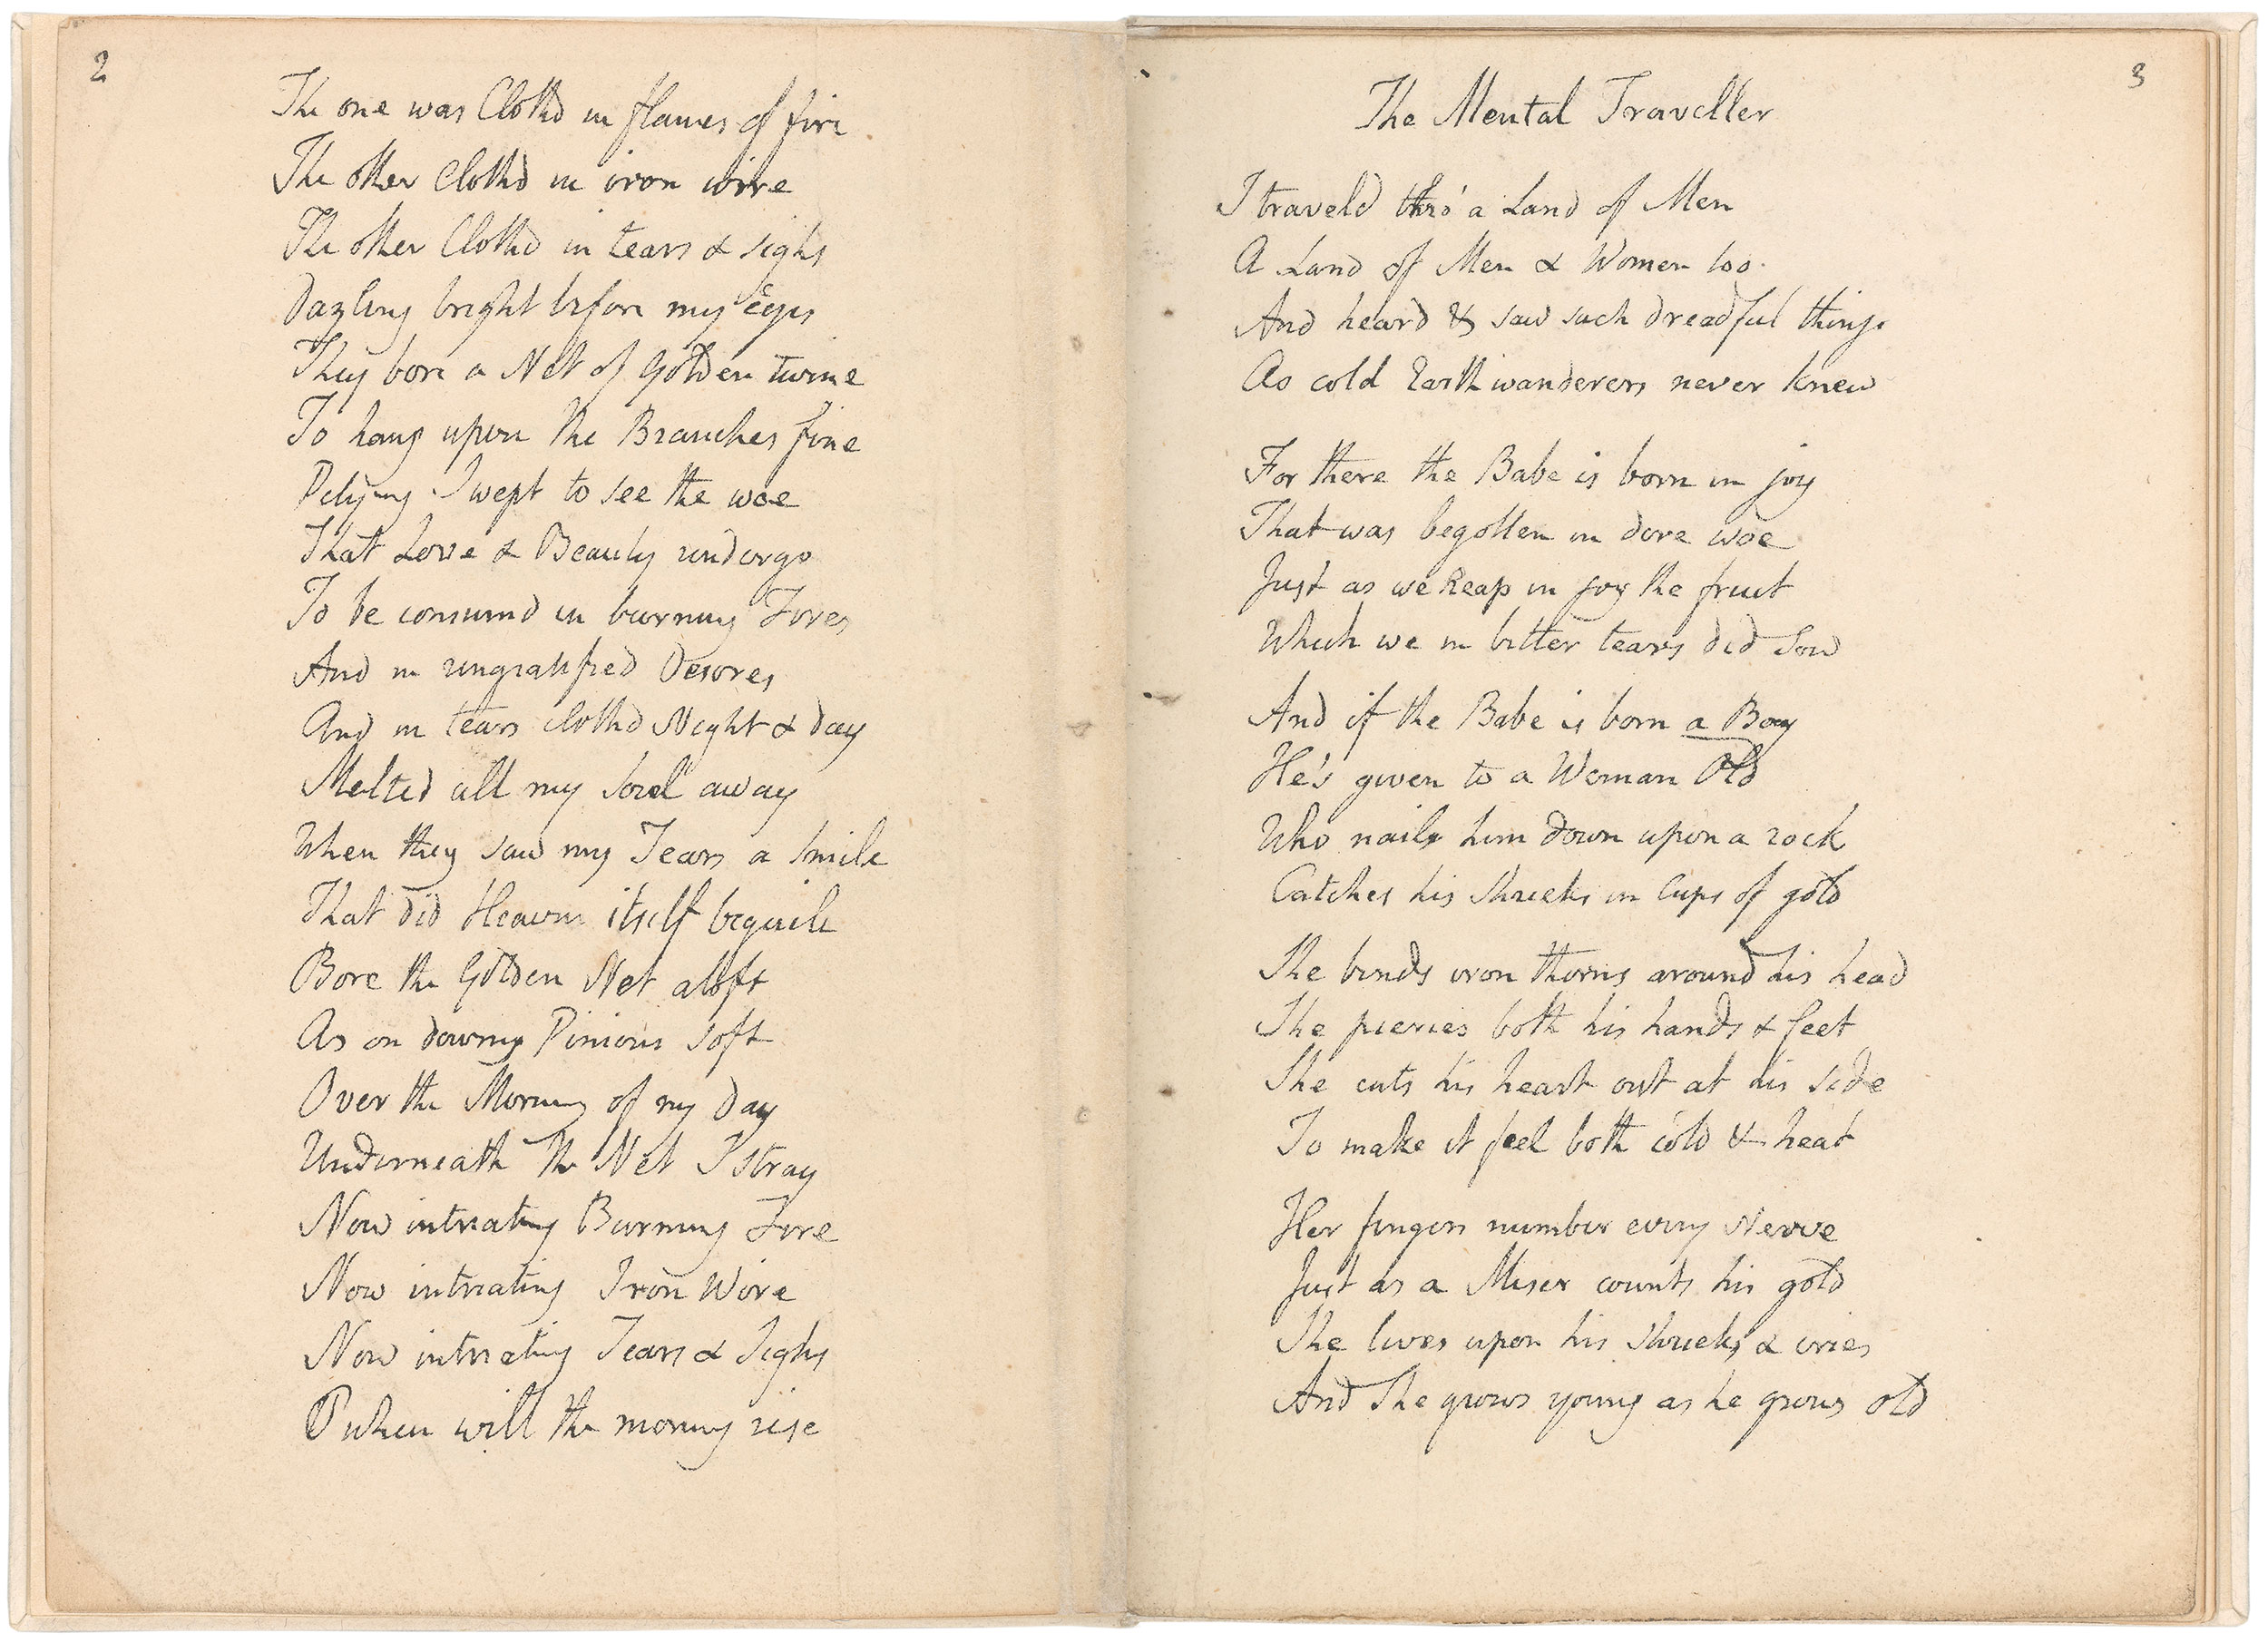 2
The one was Clothd in flames of fire
The other Clothd in iron wire
The other Clothd in tears & sighs
Dazling bright before my Eyes
They bore a Net of Golden twine
To hang upon the Branches fine
Pitying I wept to see the woe
That Love & Beauty undergo
To be consumd in burning Fires
And in ungratified Desires
And in tears clothd Night & day
Melted all my Soul away
When they saw my Tears a Smile
That did Heaven itself beguile
Bore the Golden Net aloft
As on downy Pinions soft
Over the Morning of my Day
Underneath the Net I stray
Now intreating Burning Fire
Now intreating Iron Wire
Now intreating Tears & Sighs
O when will the morning rise
3
The Mental Traveller
I traveld thro' a Land of Men
A Land of Men & Women too
And heard & saw such dreadful things
As cold Earth wanderers never knew
For there the Babe is born in joy
That was begotten in dire woe
Just as we Reap in joy the fruit
Which we in bitter tears did Sow
And if the Babe is born a Boy
He's given to a Woman Old
Who nails him down upon a rock
Catches his Shrieks in Cups of gold
She binds iron thorns around his head
She pierces both his hands & feet
She cuts his heart out at his side
To make it feel both cold & heat
Her fingers number every Nerve
Just as a Miser counts his gold
She lives upon his shrieks & cries
And She grows young as he grows old